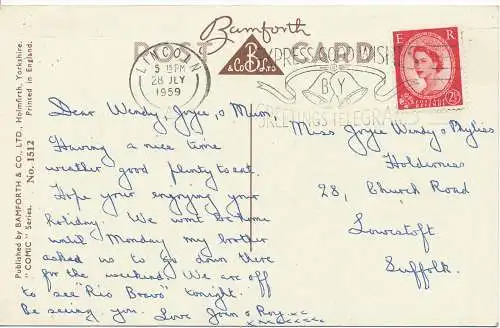 Bamforth
POST CARD
B
& Co Ltd
LINCOLN
5 15 PM
28 JLY
1959
EXPRESS GOOD WISHES
BY
GREETINGS TELEGRAMS
E R
2½D
Published by BAMFORTH & CO., LTD., Holmfirth, Yorkshire.
"COMIC" Series. No. 1512 Printed in England.
Dear Wendy, Joyce, & Mum,
Having a nice time
weather good plenty to eat.
Hope your enjoying your
holiday. We wont be home
until Monday my brother
asked us to go down there
for the weekend. We are off
to see "Rio Bravo" tonight.
Be seeing you. Love Joan & Roy. xx
xxxxxxxx
Miss Joyce Wendy & Phyliss
Holderness
28, Church Road
Lowestoft
Suffolk.